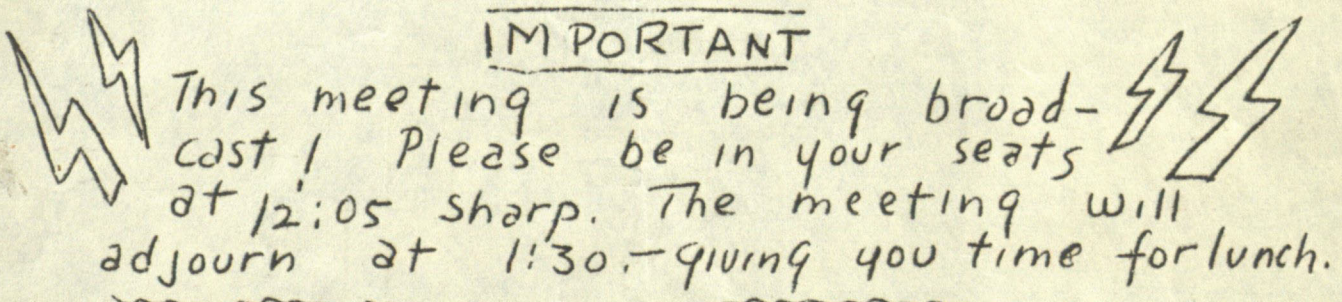 IMPORTANT
This meeting is being broad-
cast! Please be in your seats
at 12:05 sharp. The meeting will
adjourn at 1:30.-giving you time for lunch.